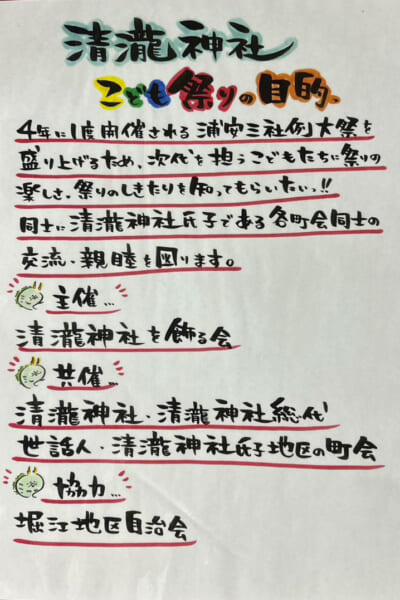 清瀧神社
こども祭りの目的、
4年に1度開催される浦安三社例大祭を
盛り上げるため、次代を担うこどもたちに祭りの
楽しさ、祭りのしきたりを知ってもらいたいっ!!
同士に清瀧神社氏子である各町会同士の
交流・親睦を図ります。
主催…
清瀧神社を飾る会
共催…
清瀧神社・清瀧神社総代
世話人・清瀧神社氏子地区の町会
協力…
堀江地区自治会